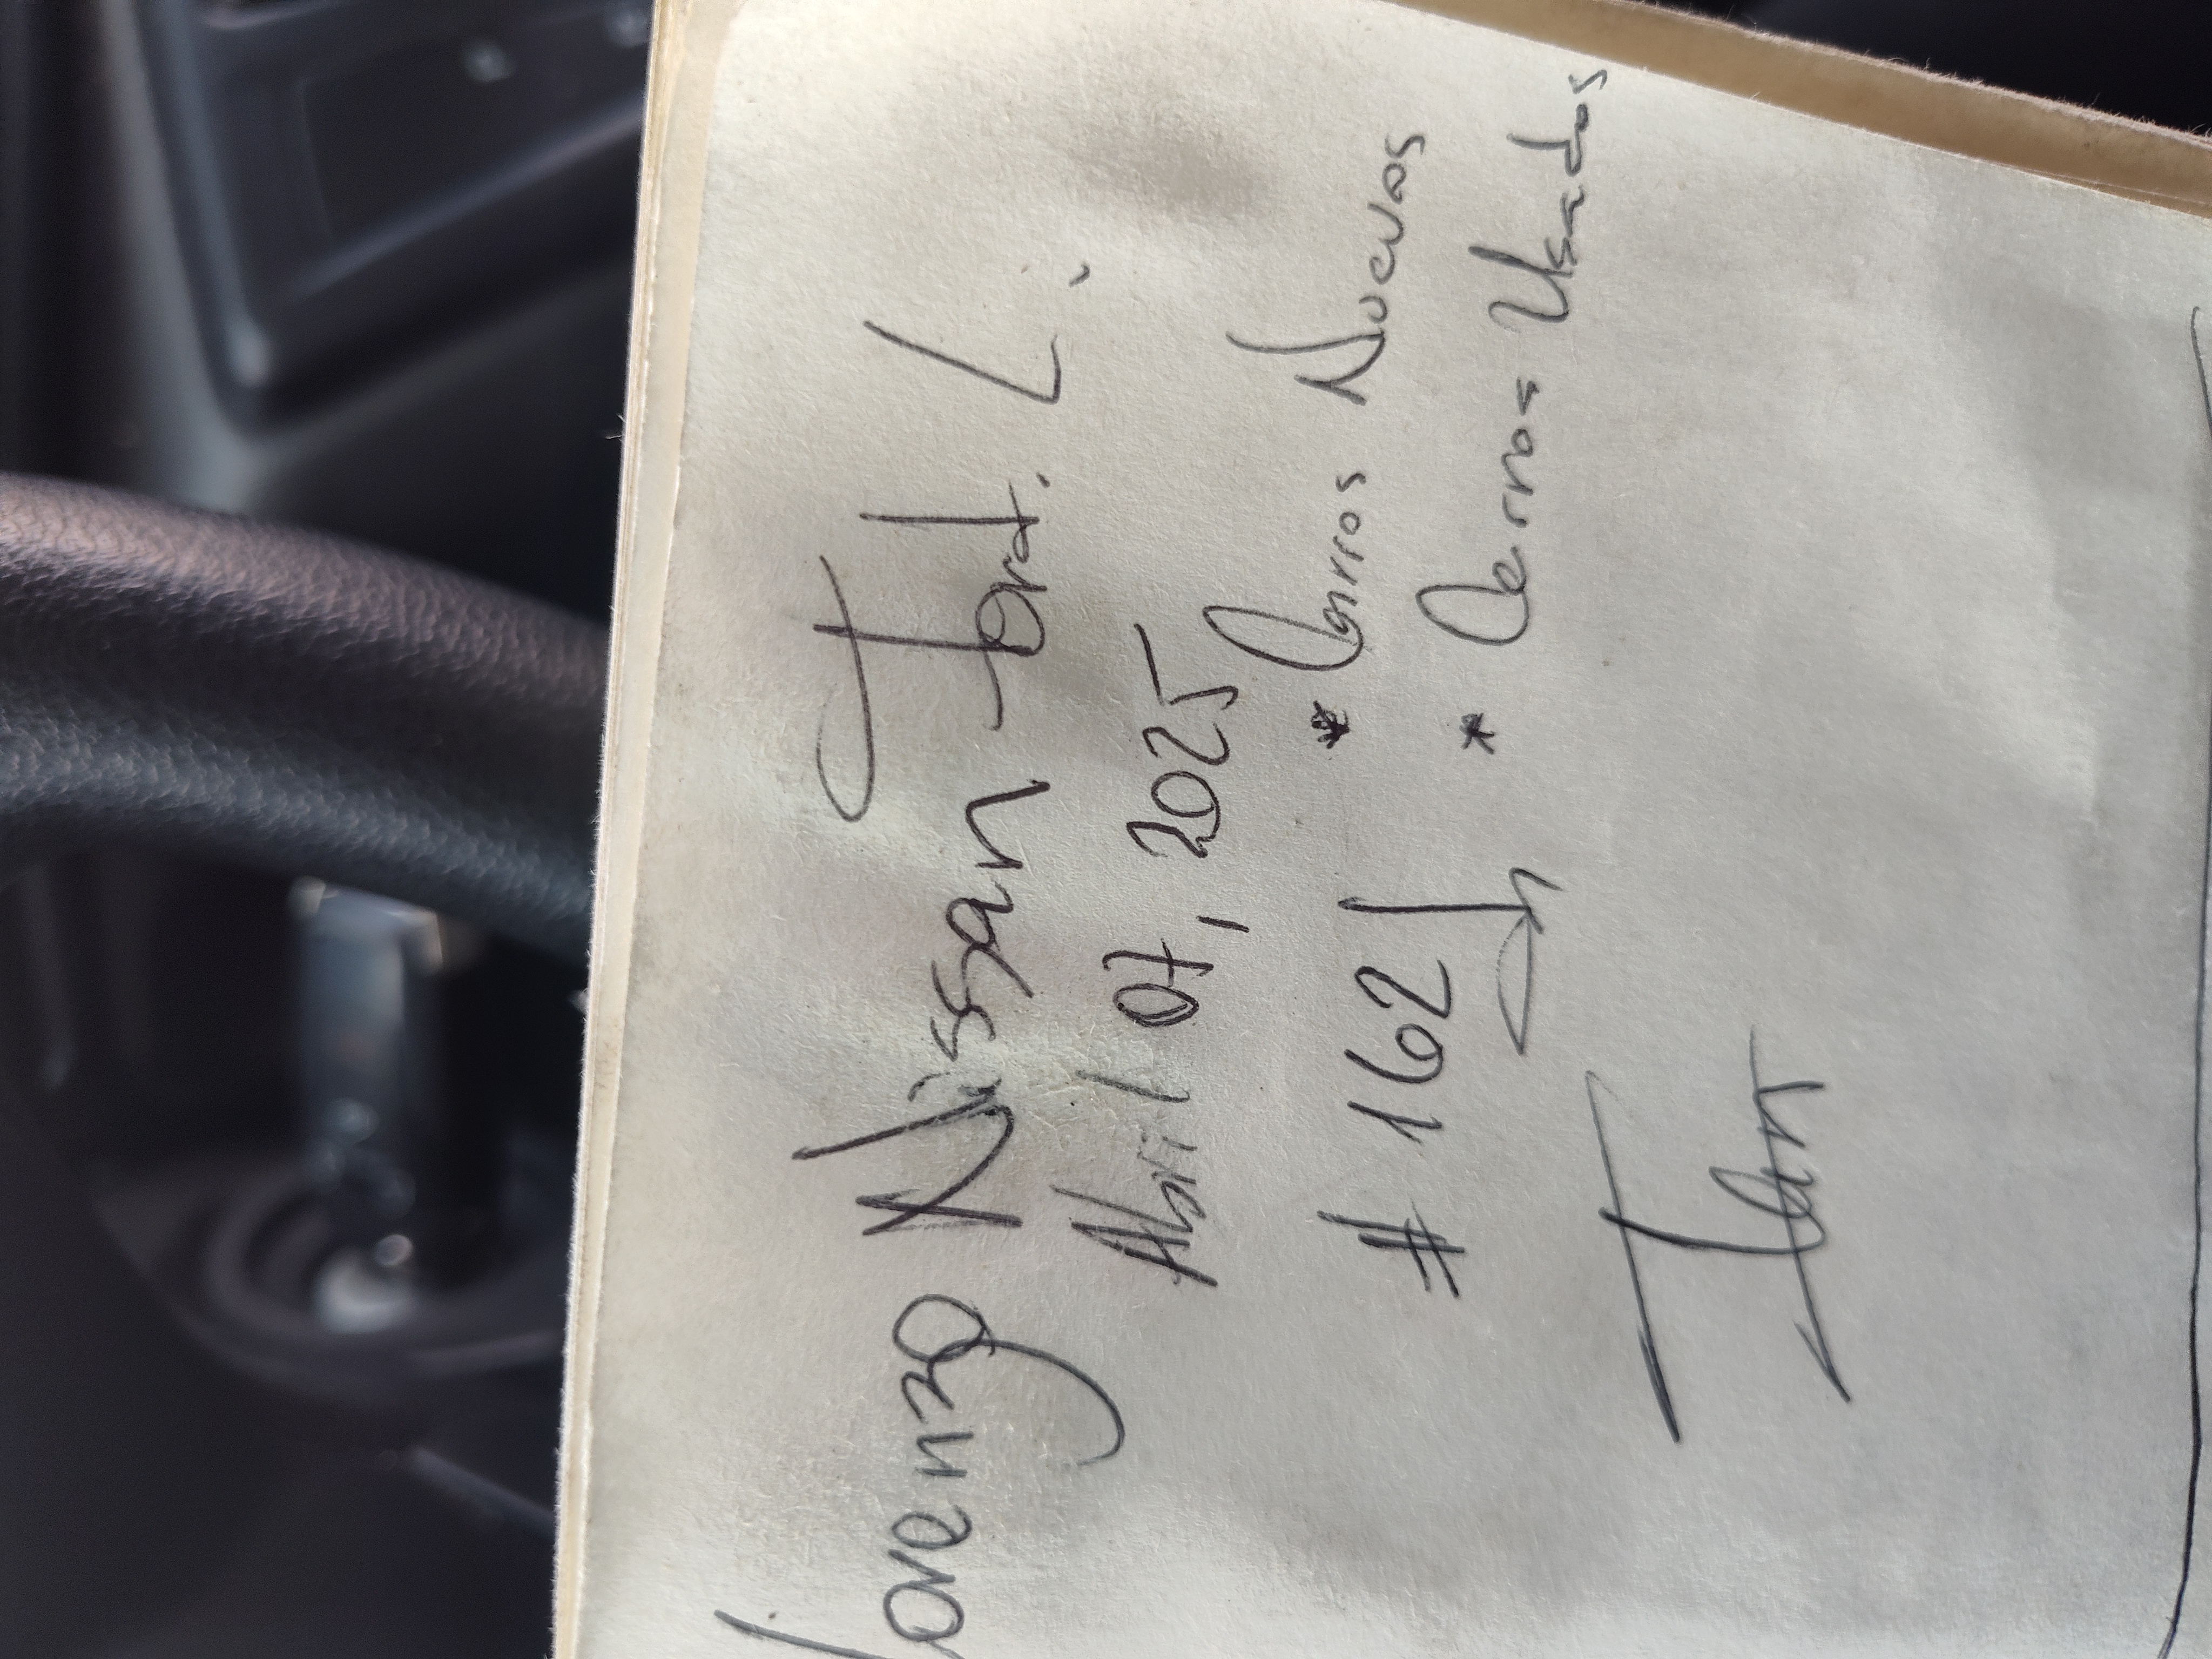 Lorenzo Nissan Ford. L.
Abril 07, 2025
# 162 * Carros Nuevos
* Carros Usados